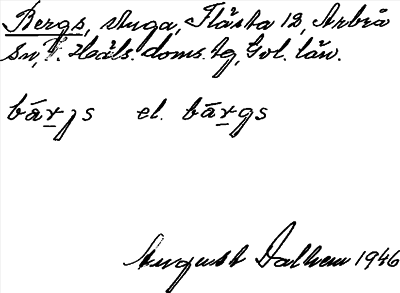 Bergs, stuga, Flästa 12, Arbrå
sn, V. Häls. doms. tg, Gvl. län.
bá̱rjs el. bá̱rgs
August Dalhem 1946